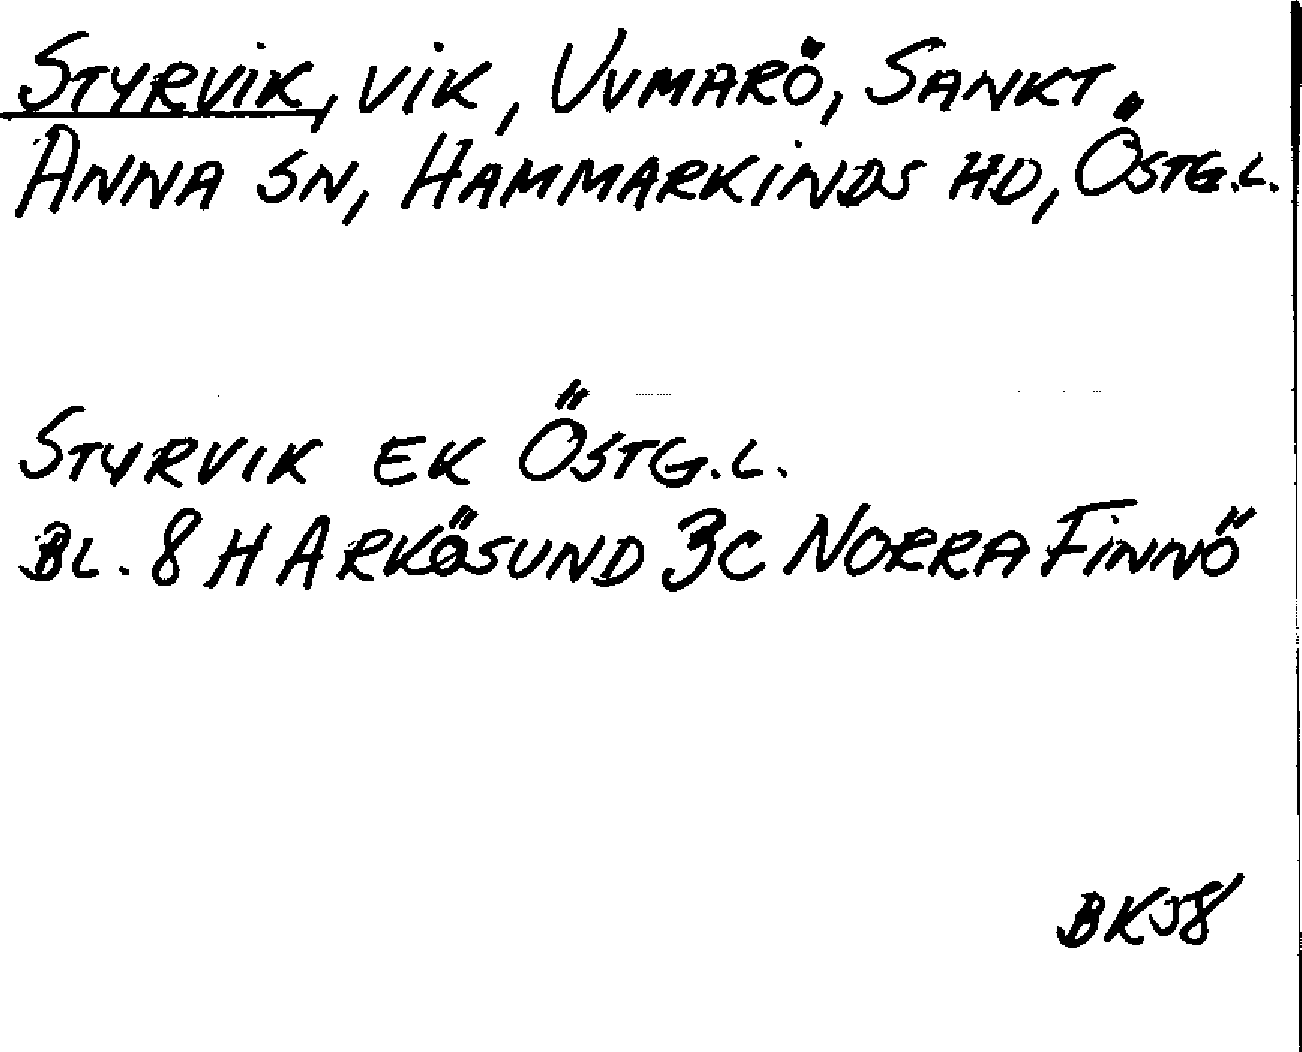 STYRVIK, VIK, UVMARÖ, SANKT
ANNA SN, HAMMARKINDS HD, ÖSTG.L.
STYRVIK EK ÖSTG.L.
BL. 8 H ARKÖSUND 3C NORRA FINNÖ